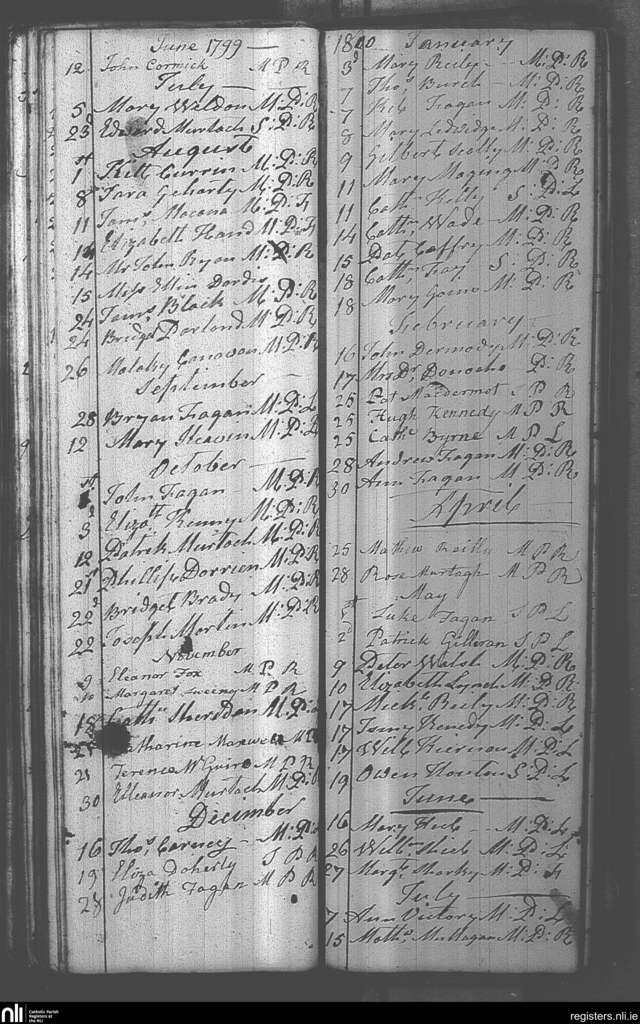 June 1799 —
12 John Cormick M P R
July —
5 Mary Weldon M: D: R
23d Edward Murtach S: D: R
August
1st Kitt Currin M: D: R
8 Tara Geharty M: D: R
11 Jams Macona M: D: F
Elizabeth Hand M: D: F
14 Mr John Ryan M: D: R
15 Miss Dardis
24 James Black M: D: R
24 Bridget Darland M: D: R
26 Malaky Canavan M: D: R
September —
28 Bryan Fagan M: D: L
12 Mary Heaven M: D: L
October —
1st John Fagan — M: D: R
3d Elizath Kenny M: D: R
12 Patrick Murtach M: D: R
21st Phillip Dorrien M: D: R
22d Bridget Brady M: D: R
22 Joseph Martin M: D: R
November
9 Eleanor Fox M P R
10 Margaret Sweeny M P R
18 Cathne Sheridan M: D:
Maxwell M
21 Terence McGuire M P R
30 Elleanor Murtach M: D:
December
16 Thos Carency — M: D:
19 Eliza Doherty S P R
28 Judith Fagan M P R
1800 January
3d Mary Reily — M: D: R
7 Thos Burch — M: D: R
7 Fagan M: D: R
8 Mary Ledwidge M: D: R
9 Gilbert Scally M: D: R
11 Mary M: D: R
11 Cathe Kelly S: D: L
14 Cathe Wade M: D: R
15 Caffrey M: D: R
18 Cathe Fay S: D: R
18 Mary M: D: R
February —
16 John Dermody M: D: R
17 Mrs Donocho D: R
25 Pat Macdermot S P R
25 Hugh Kennedy M P R
25 Cathe Byrne M P L
28 Andrew Fagan M: D: R
30 Ann Fagan M: D: R
April
25 Mathew Reilly M P R
28 Rose Murtagh M P R
May
1st Luke Fagan S P L
2d Patrick S P L
9 Peter Walsh M: D: R
10 Elizabeth Lynch M: D: R
17 Michl Reely M: D: R
17 Kenedy M: D: L
17 Will Hiernan M: D: L
19 Owen S: D: L
June —
16 Mary — M: D: L
26 Willm M: D: L
27 Margt Sharky M: D: F
July —
7 Ann Victory M: D: L
15 Mullagan M: D: R
nli
Catholic Parish
Registers at
the NLI
registers.nli.ie